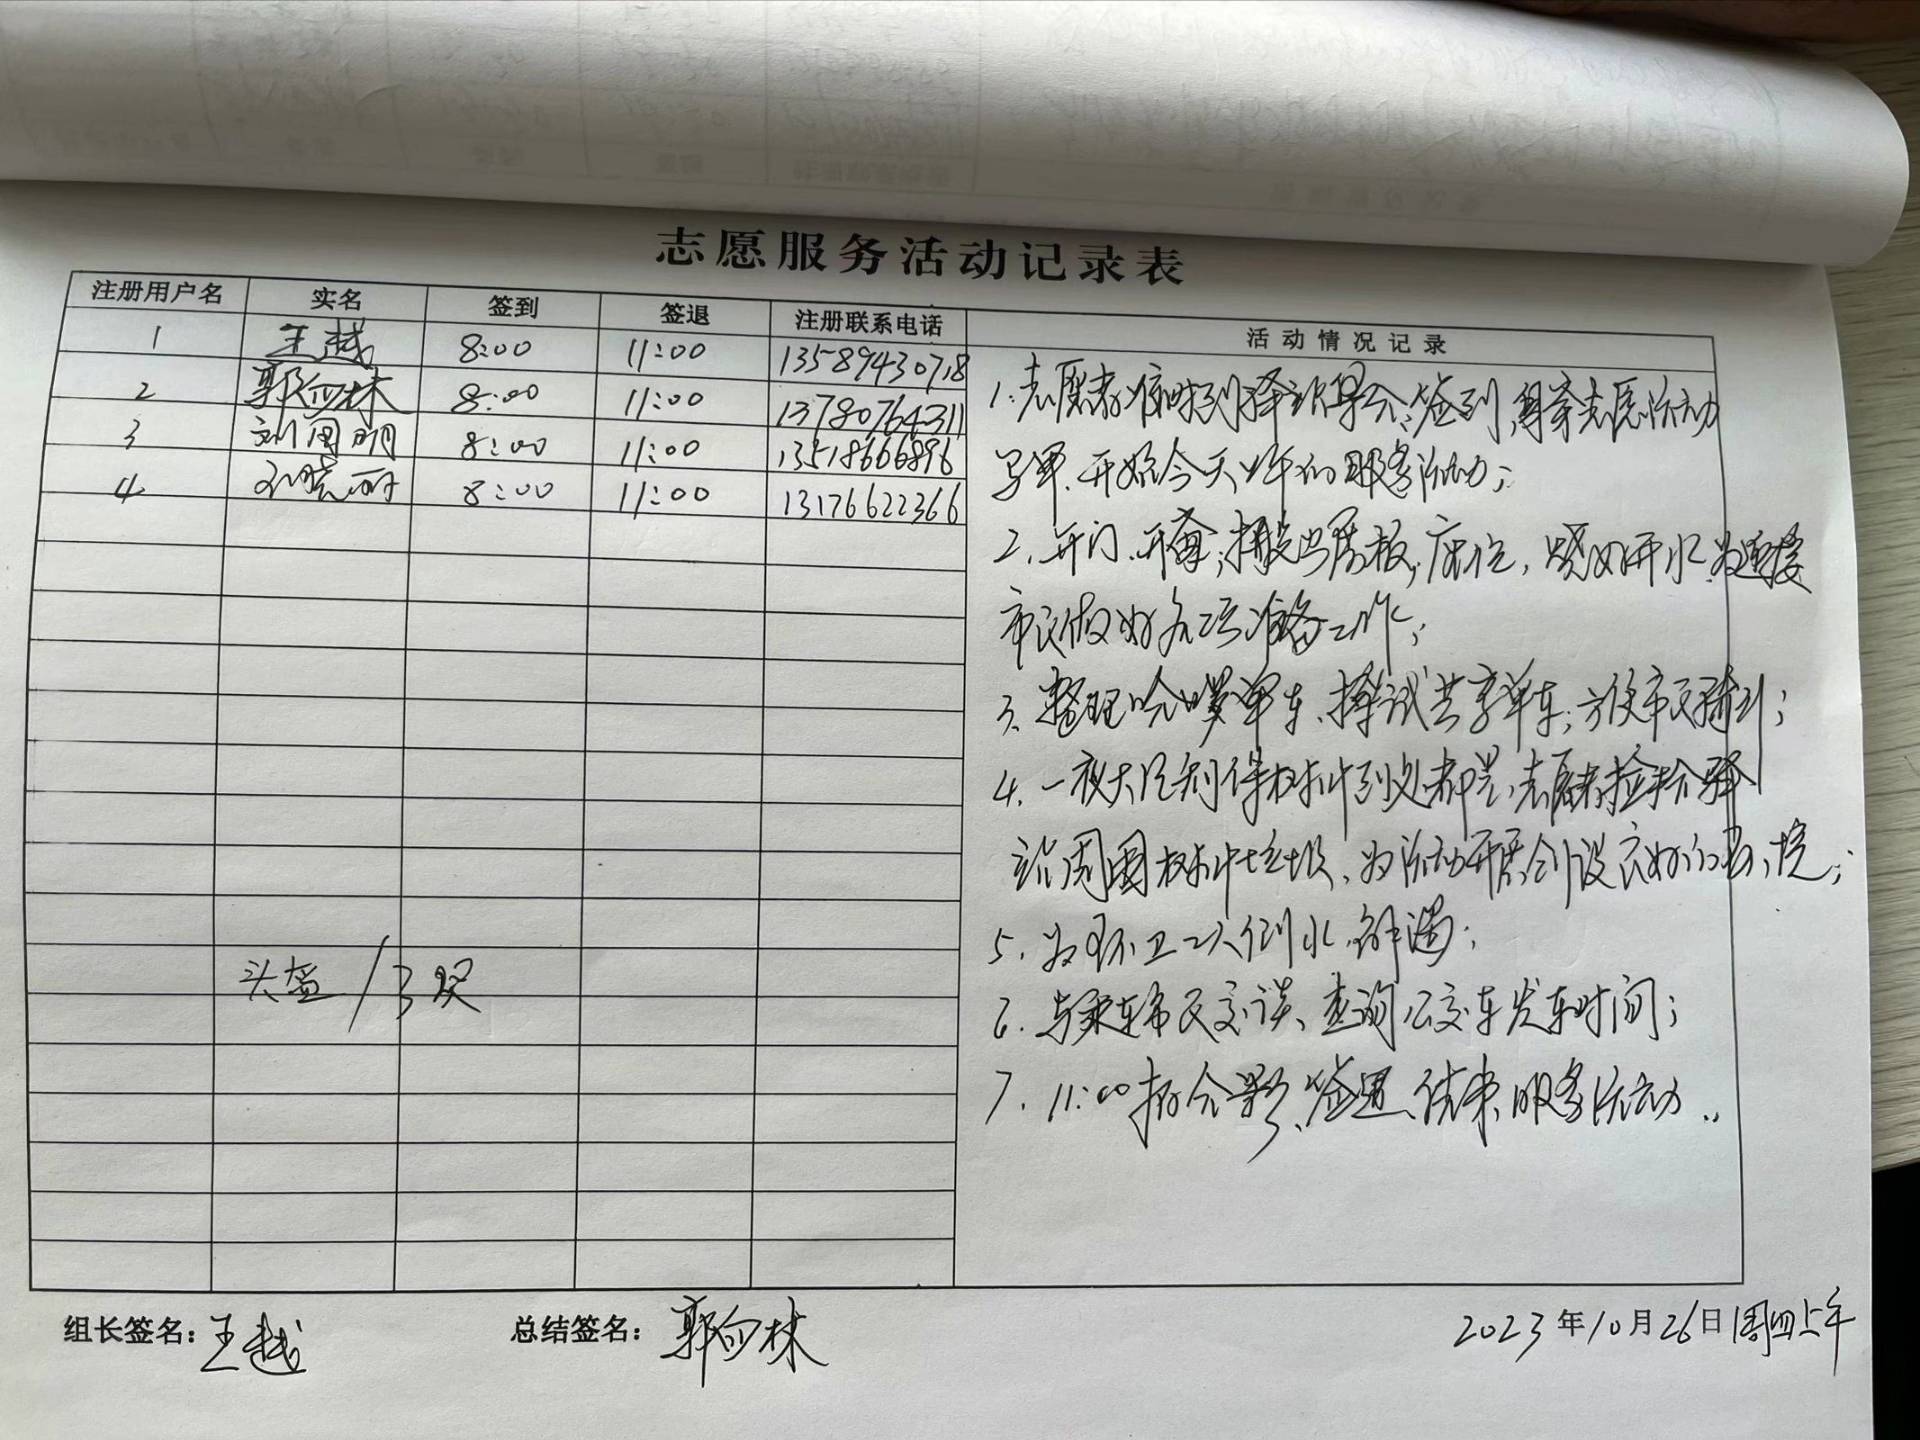 志愿服务活动记录表
注册用户名 实名 签到 签退 注册联系电话 活动情况记录
1 王越 8:00 11:00 13589430718
2 郭向林 8:00 11:00 13780764311
3 刘国明 8:00 11:00 13518666896
4 孙晓丽 8:00 11:00 13176622366
头盔/3顶
1.志愿者准时到驿站集合、签到,志愿活动
、开始今天上午的服务活动;
2.开门、开窗,摆出展板、座位,烧好开水,为迎接
市民做好各项准备工作;
3.整理哈啰单车、擦拭共享单车,方便市民骑行;
4.一夜大风刮得树叶到处都是,志愿者捡拾驿
站周围树叶垃圾、为活动开展创设良好的环境;
5.为环卫工人倒水、解渴;
6.与乘车市民交谈、查询公交车发车时间;
7.11:00拍合影、签退、结束服务活动..
组长签名:王越 总结签名:郭向林 2023年10月26日周四上午